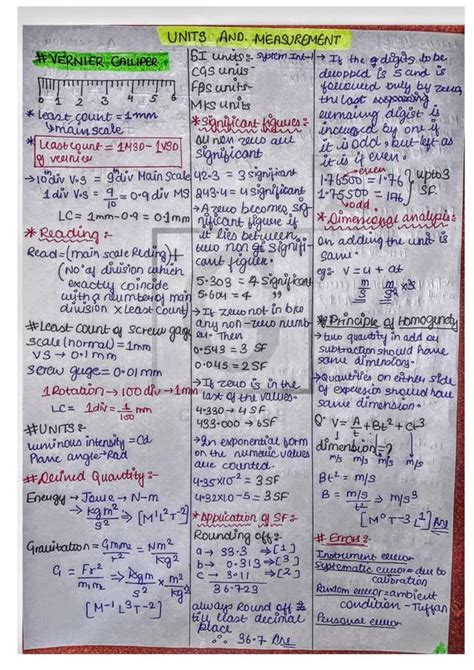 UNITS AND MEASUREMENT
# VERNIER CALLIPER
0 1 2 3 4 5 6
* least count = 1mm
→ main scale
* Least count = 1MSD - 1VSD
of vernier
→ 10 div V.S = 9 div Main Scale
1 div V.S = 9/10 = 0.9 div MS
LC = 1mm - 0.9 = 0.1mm
* Reading :-
Read = (main scale Reding) +
(No. of division which
exactly coincide
with a number of main
division x least count)
# Least count of screw gage
scale (normal) = 1mm
VS → 0.1mm
screw guge = 0.01mm
1 Rotation → 100 div → 1mm
LC = 1div = 1/100 mm
# UNITS :-
luminous intensity = Cd
Plane angle → Rad
# Derived Quantity :-
Energy → Joule → N-m
→ kgm²/s² → [M¹L²T⁻²]
Gravitation = Gmm/r² = Nm²/kg²
G = Fr²/m₁m₂ ⇒ kgm/s² x m²/kg²
[M⁻¹L³T⁻²]
SI units :- System Int-l
CGS units
FPS units
MKS units
* Significant figures :-
All non zero are
significant
42.3 = 3 significant
243.4 = 4 significant
→ A zero becomes sig-
nificant figure if
it lies between
two non Signifi-
cant figure.
5.303 = 4 Significant
5.604 = 4 "
→ If zero not in b/w
any non-zero numb-
er. Then
0.543 = 3 SF
0.045 = 2 SF
→ If zero is in the
last of the values.
4.330 → 4 SF
433.000 → 6 SF
→ In exponential form
on the numeric values
are counted.
4.35x10² = 3 SF
4.32x10⁻⁵ = 3 SF
* Application of SF :-
Rounding off :-
a → 33.3 → [1]
b → 0.313 → [3]
c → 3.11 → [2]
36.723
always Round off
till least decimal
place
∴ 36.7 Ans
→ If the digits to be
dropped is 5 and is
followed only by zeros,
the last
remaining digit is
increased by one if
it is odd, but left as
it is if even.
→ even
1.76500 = 1.76 } upto 3
1.75500 = 176 } SF
→ odd
* Dimensional analysis :-
On adding the unit is
same
eg:- V = u + at
m/s m/s² x s
* Principle of homogenity
→ two quantity in add or
subtraction should have
same dimension.
→ Quantities on either side
of expression should have
same dimension.
Q. V = A/t + Bt² + Ct³
dimension = ?
m/s m/s m/s m/s
Bt² = m/s
B = m/s/t² ⇒ m/s³
[M⁰T⁻³L¹] Ans
# Errors :-
Instrument error
Systematic error = due to
calibration
Random error = ambient
condition - Tuffan
Personal error